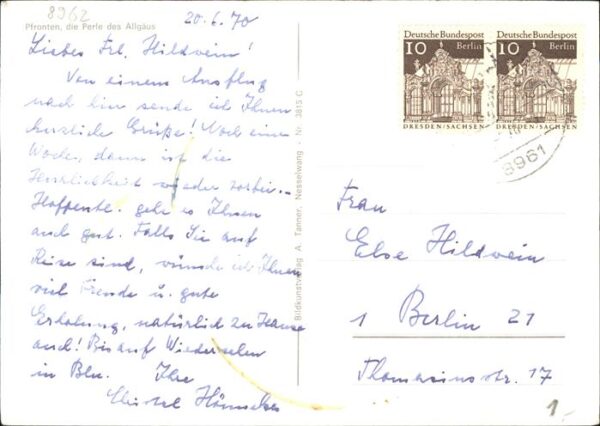 8962
Pfronten, die Perle des Allgäus
20.6.70
Liebes Frl. Hildwein!
Von einem Ausflug
nach hier sende ich Ihnen
herzliche Grüße! Noch eine
Woche, dann ist die
Herrlichkeit wieder vorbei..
Hoffentl. geht es Ihnen
auch gut. Falls Sie auf
Reise sind, wünsche ich Ihnen
viel Freude u. gute
Erholung, natürlich zu Hause
auch! Bis auf Wiedersehen
in Bln. Ihre
Christel
Bildkunstverlag A. Tanner, Nesselwang - Nr. 3815 C
Deutsche Bundespost
10 Berlin
DRESDEN/SACHSEN
Deutsche Bundespost
10 Berlin
DRESDEN/SACHSEN
8961
Frau
Else Hildwein
1 Berlin 21
Thomasiusstr. 17
1.-